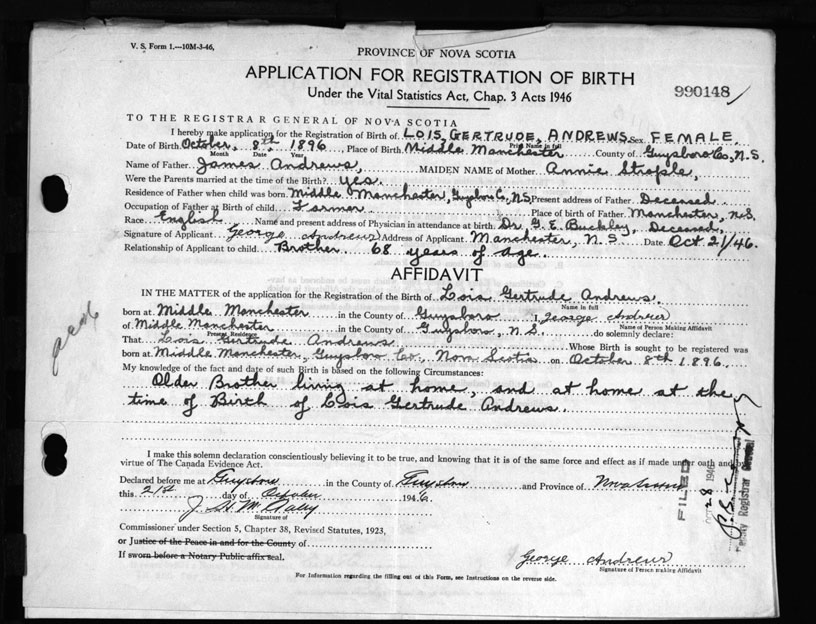 V. S. Form 1.—10M-3-46.
PROVINCE OF NOVA SCOTIA
APPLICATION FOR REGISTRATION OF BIRTH
Under the Vital Statistics Act, Chap. 3 Acts 1946
990148
TO THE REGISTRAR GENERAL OF NOVA SCOTIA
I hereby make application for the Registration of Birth of LOIS, GERTRUDE, ANDREWS. Sex FEMALE.
Print Name in full
Date of Birth October, 8th 1896, Place of Birth Middle Manchester County of Guysboro Co, N.S.
Month Date Year
Name of Father James Andrews, MAIDEN NAME of Mother Annie Strople,
Were the Parents married at the time of the Birth? yes.
Residence of Father when child was born Middle Manchester, Guysboro Co, NS Present address of Father Deceased
Occupation of Father at Birth of child Farmer Place of birth of Father Manchester, N.S.
Race English Name and present address of Physician in attendance at birth Dr. G. E. Buckley, Deceased,
Signature of Applicant George Andrews Address of Applicant Manchester, N.S. Date Oct 21/46.
Relationship of Applicant to child Brother 68 years of age.
AFFIDAVIT
IN THE MATTER of the application for the Registration of the Birth of Lois Gertrude Andrews.
Name in full
born at Middle Manchester in the County of Guysboro I, George Andrews
Name of Person Making Affidavit
of Middle Manchester in the County of Guysboro, N.S. do solemnly declare:
Present Residence
That Lois Gertrude Andrews Whose Birth is sought to be registered was
born at Middle Manchester, Guysboro Co., Nova Scotia on October 8th 1896.
My knowledge of the fact and date of such Birth is based on the following Circumstances:
Older Brother living at home, and at home at the
time of Birth of Lois Gertrude Andrews.
I make this solemn declaration conscientiously believing it to be true, and knowing that it is of the same force and effect as if made under oath and by
virtue of The Canada Evidence Act.
Declared before me at Guysboro in the County of Guysboro and Province of Nova Scotia
this 21st day of October 1946
Signature of
Commissioner under Section 5, Chapter 38, Revised Statutes, 1923,
or Justice of the Peace in and for the County of
If sworn before a Notary Public affix seal.
George Andrews
Signature of Person making Affidavit
For Information regarding the filling out of this Form, see Instructions on the reverse side.
FILED
28 1946
Deputy Registrar General